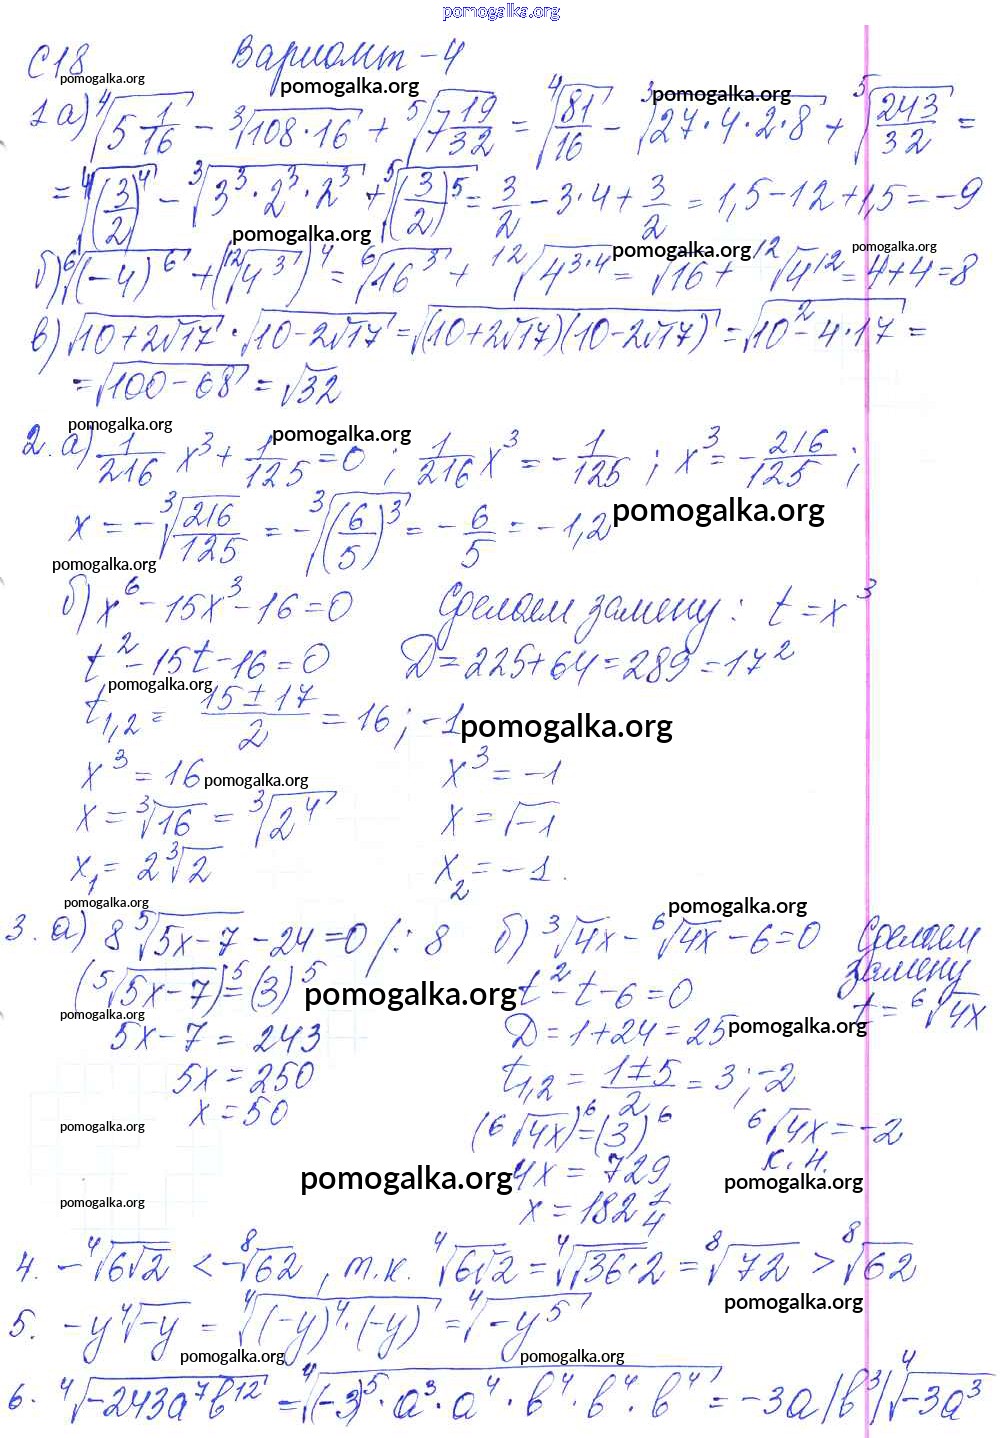 pomogalka.org
С18 Вариант-4
pomogalka.org pomogalka.org pomogalka.org
1 а) ⁴√(5 1/16) − ³√(108·16) + ⁵√(7 19/32) = ⁴√(81/16) − ³√(27·4·2·8) + ⁵√(243/32) =
= ⁴√((3/2)⁴) − ³√(3³·2³·2³) + ⁵√((3/2)⁵) = 3/2 − 3·4 + 3/2 = 1,5−12+1,5=−9
pomogalka.org pomogalka.org pomogalka.org
б) ⁶√((−4)⁶) + (¹²√(4³))⁴ = ⁶√(16³) + ¹²√(4³·⁴) = √16 + ¹²√(4¹²) = 4+4=8
в) √(10+2√17) · √(10−2√17) = √((10+2√17)(10−2√17)) = √(10²−4·17) =
= √(100−68) = √32
pomogalka.org pomogalka.org
2. а) 1/216 x³ + 1/125 = 0 ; 1/216 x³ = −1/125 ; x³ = −216/125 ;
x = −³√(216/125) = −³√((6/5)³) = −6/5 = −1,2 pomogalka.org
pomogalka.org
б) x⁶−15x³−16=0 Сделаем замену: t=x³
t²−15t−16=0 D=225+64=289=17²
pomogalka.org
t₁,₂ = (15±17)/2 = 16; −1 pomogalka.org
x³=16 pomogalka.org x³=−1
x=³√16 = ³√(2⁴) x=√−1
x₁=2³√2 x₂=−1.
pomogalka.org pomogalka.org
3. а) 8 ⁵√(5x−7) −24=0 /: 8 б) ³√4x − ⁶√4x −6=0 Сделаем
замену
(⁵√(5x−7))⁵=(3)⁵ pomogalka.org t²−t−6=0 t=⁶√4x
pomogalka.org pomogalka.org
5x−7=243 D=1+24=25
5x=250 t₁,₂ = (1±5)/2 = 3; −2
x=50 (⁶√4x)⁶=(3)⁶ ⁶√4x=−2
pomogalka.org
4x=729 к.н.
pomogalka.org pomogalka.org
pomogalka.org x=182 1/4
4. −⁴√(6√2) < −⁸√62, т.к. ⁴√(6√2) = ⁴√(√(36·2)) = ⁸√72 > ⁸√62
pomogalka.org
5. −y ⁴√−y = ⁴√((−y)⁴·(−y)) = ⁴√(−y⁵)
pomogalka.org pomogalka.org
6. ⁴√(−243a⁷b¹²) = ⁴√((−3)⁵·a³·a⁴·b⁴·b⁴·b⁴) = −3a|b³| ⁴√(−3a³)